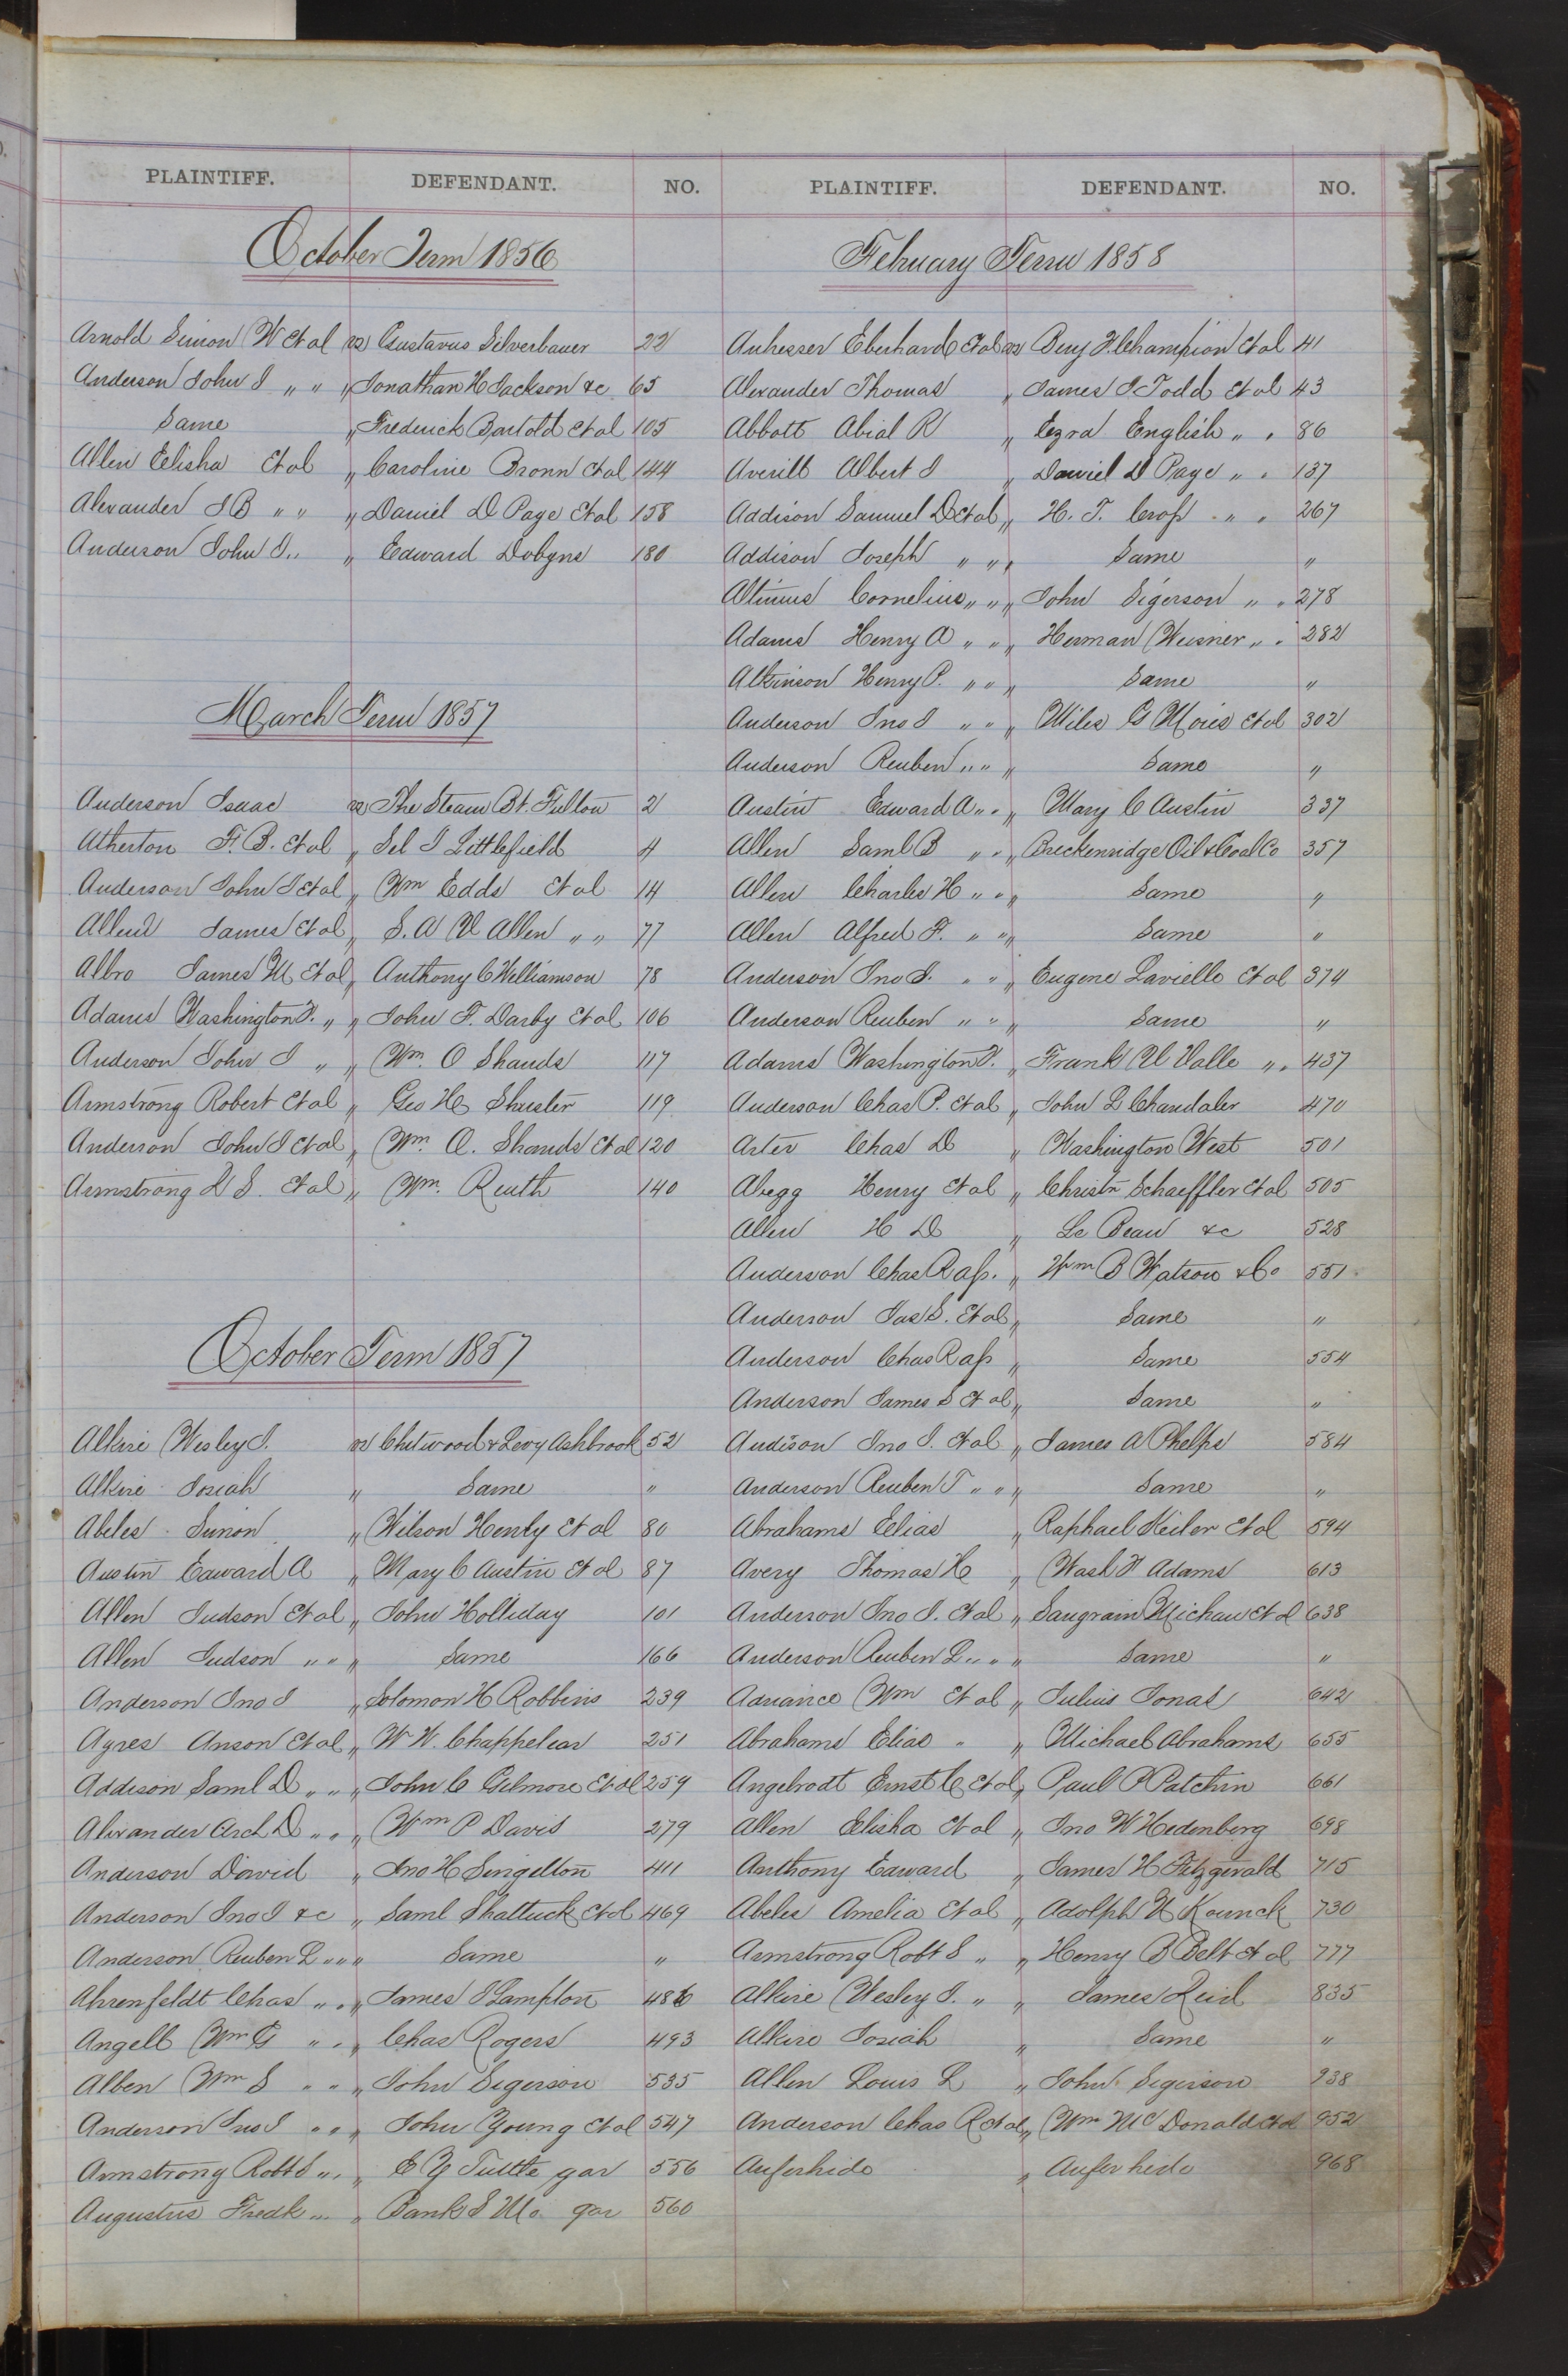 PLAINTIFF. DEFENDANT. NO.
October Term 1856
Arnold Simon W Et al vs Gustavus Silverbauer 22
Anderson John J „ „ „ Jonathan H Jackson &c 65
Same „ Frederick Bartold et al 105
Allen Elisha Et al „ Caroline Bronn et al 144
Alexander J B „ „ „ Daniel D Page Et al 158
Anderson John J „ „ Edward Dobyns 180
March Term 1857
Anderson Isaac vs The Steam Bt. Fulton 2
Atherton F. B. Et al „ Sel J Littlefield 4
Anderson John J Et al „ Wm Edds Et al 14
James Et al „ S. A V Allen „ „ 77
Albro James M Et al „ Anthony C Williamson 78
Adams Washington „ „ John F. Darby Et al 106
Anderson John J „ „ Wm. O Shands 117
Armstrong Robert Et al „ Geo H Shuster 119
Anderson John J Et al „ Wm. O. Shands Et al 120
Armstrong R S. Et al „ Wm. Reuth 140
October Term 1857
Alkire Wesley J. vs Chitwood & Levy Ashbrook 52
Alkire Josiah „ Same „
Abeles Simon „ Wilson Henly Et al 80
Austin Edward A „ Mary C Austin Et al 87
Allen Judson Et al „ John Holliday 101
Allen Judson „ „ „ Same 166
Anderson Jno J „ Solomon H Robbins 239
Ayres Anson Et al „ W W. Chappelear 251
Addison Saml D „ „ „ John C Gilmore Et al 259
Alexander Arch D „ „ „ Wm P Davis 279
Anderson David „ Jno H Singelton 411
Anderson Jno J &c „ Saml Shattuck Et al 469
Anderson Reuben L „ „ „ Same „
Ahrenfeldt Chas „ „ „ James J Lampton 486
Angell Wm G „ „ „ Chas Rogers 493
Allen Wm S „ „ „ John Sigerson 535
Anderson Jno J „ „ „ John Young Et al 547
Armstrong Robt S „ „ „ E Y Tuttle gar 556
Augustus Fredk „ „ Bank S Mo gar 560
PLAINTIFF. DEFENDANT. NO.
Febuary Term 1858
Anheuser Eberhard Et al vs Benj F. Champion Et al 41
Alexander Thomas „ James J Todd Et al 43
Abbott Abial R „ Ezra English „ „ 86
Averill Albert J „ Daniel D Page „ „ 137
Addison Samuel D Et al „ H. T. „ „ 267
Addison Joseph „ „ „ Same „
Altimus Cornelius „ „ „ John Sigerson „ „ 278
Adams Henry A „ „ „ Herman Weisner „ „ 282
Atkinson Henry P. „ „ „ Same „
Anderson Jno J „ „ „ Miles G Et al 302
Anderson Reuben „ „ „ Same „
Austin Edward A „ „ „ Mary C Austin 337
Allen Saml B „ „ „ Breckenridge Oil & Coal Co 357
Allen Charles H „ „ „ Same „
Allen Alfred F. „ „ „ Same „
Anderson Jno J. „ „ „ Eugene Laviello Et al 374
Anderson Reuben „ „ „ Same „
Adams Washington „ Frank V Valle „ „ 437
Anderson Chas P. Et al „ John L Chandaler 470
Arter Chas D „ Washington West 501
Abegg Henry Et al „ Christn Schaeffler Et al 505
Allen H D „ Le Beau &c 528
Anderson Chas R „ Wm B Watson & Co 551
Anderson Jas S. Et al „ Same „
Anderson Chas R „ Same 554
Anderson James S Et al „ Same „
Andison Jno J. Et al „ James A Phelps 584
Anderson Reuben T „ „ „ Same „
Abrahams Elias „ Raphael Keiler Et al 594
Avery Thomas H „ Wash Adams 613
Anderson Jno J. Et al „ Saugrain Michau Et al 638
Anderson Reuben L „ „ „ Same „
Adriance Wm Et al „ Julius Jonas 642
Abrahams Elias „ „ Michael Abrahams 655
Angelrodt Ernst C Et al „ Paul P Patchin 661
Allen Elisha Et al „ Jno W Hedenberg 698
Anthony Edward „ James H Fitzgerald 715
Abeles Amelia Et al „ Adolph 730
Armstrong Robt S „ „ Henry B Belt Et al 777
Alkire Wesley J. „ „ James Reid 835
Alkire Josiah „ Same „
Allen Louis L „ John Sigerson 938
Anderson Chas R Et al „ Wm McDonald Et al 952
968